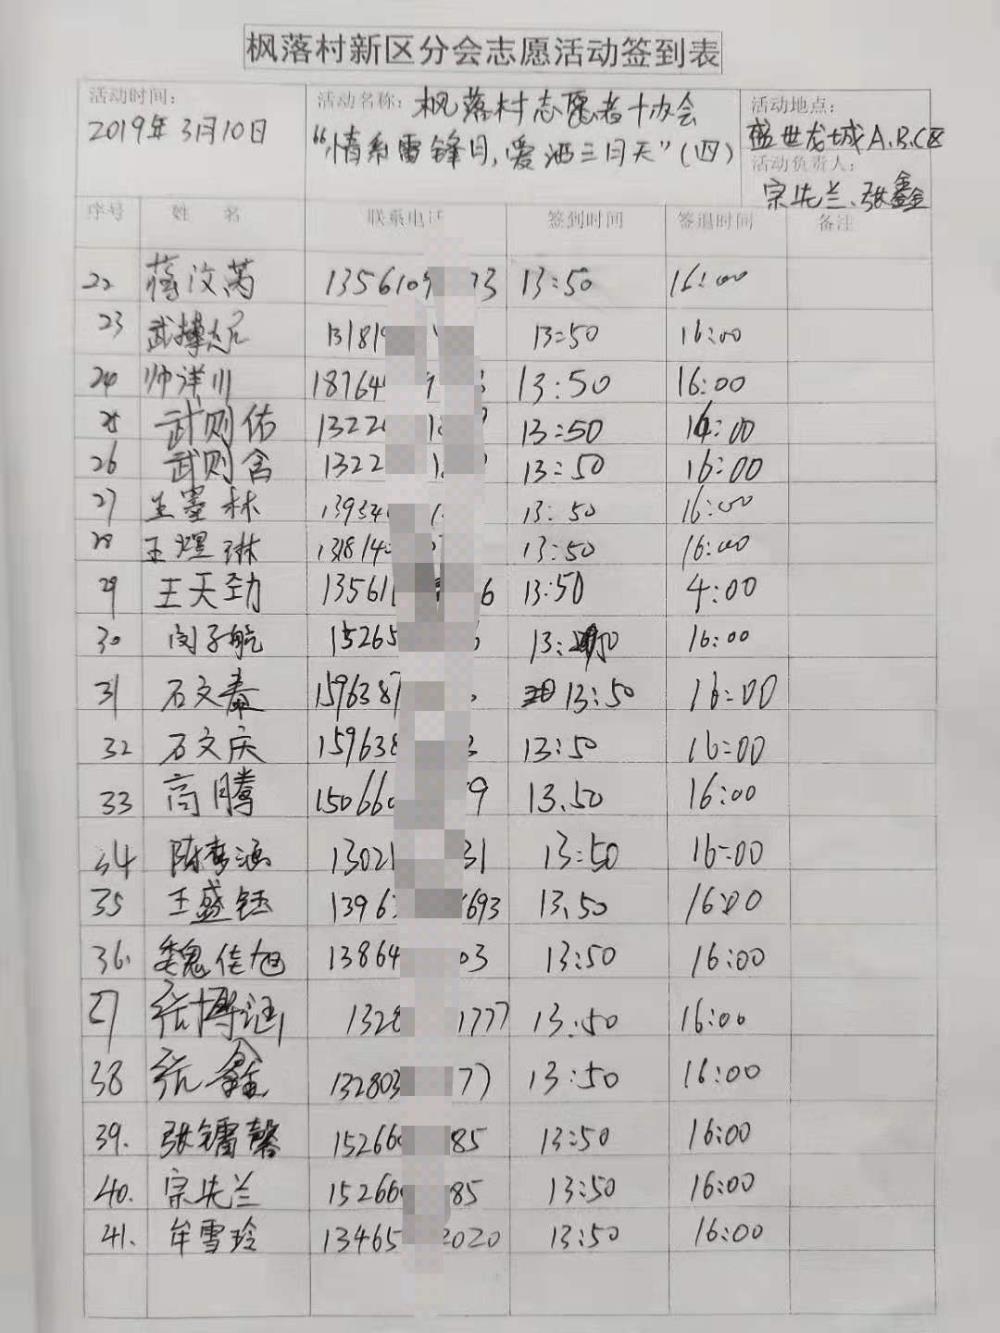 枫落村新区分会志愿活动签到表
活动时间： 活动名称：枫落村志愿者协会 活动地点：
2019年3月10日 “情系雷锋月，爱洒三月天”（四） 盛世龙城A.B.C区
活动负责人：
宗先兰、张鑫
序号 姓 名 联系电话 签到时间 签退时间 备注
22 蒋汶芮 1356109 73 13:50 16:00
23 武 131819 13:50 16:00
24 帅洋川 18764 13:50 16:00
25 武则佑 1322 13:50 16:00
26 武则含 1322 13:50 16:00
27 王墨林 1393 13:50 16:00
28 王煜琳 13181 13:50 16:00
29 王天劲 13561 6 13:50 4:00
30 闵子航 15265 13: 16:00
31 石文秦 159638 13:50 16:00
32 石文庆 159638 3 13:50 16:00
33 高腾 15066 9 13.50 16:00
34 陈李涵 1302 31 13:50 16:00
35 王盛钰 1396 693 13.50 16:00
36. 魏佳旭 13864 03 13:50 16:00
27 张博涵 1328 1777 13:50 16:00
38 张鑫 132803 77 13:50 16:00
39. 张镭馨 15266 85 13:50 16:00
40. 宗先兰 15266 85 13:50 16:00
41. 牟雪玲 13465 2020 13:50 16:00